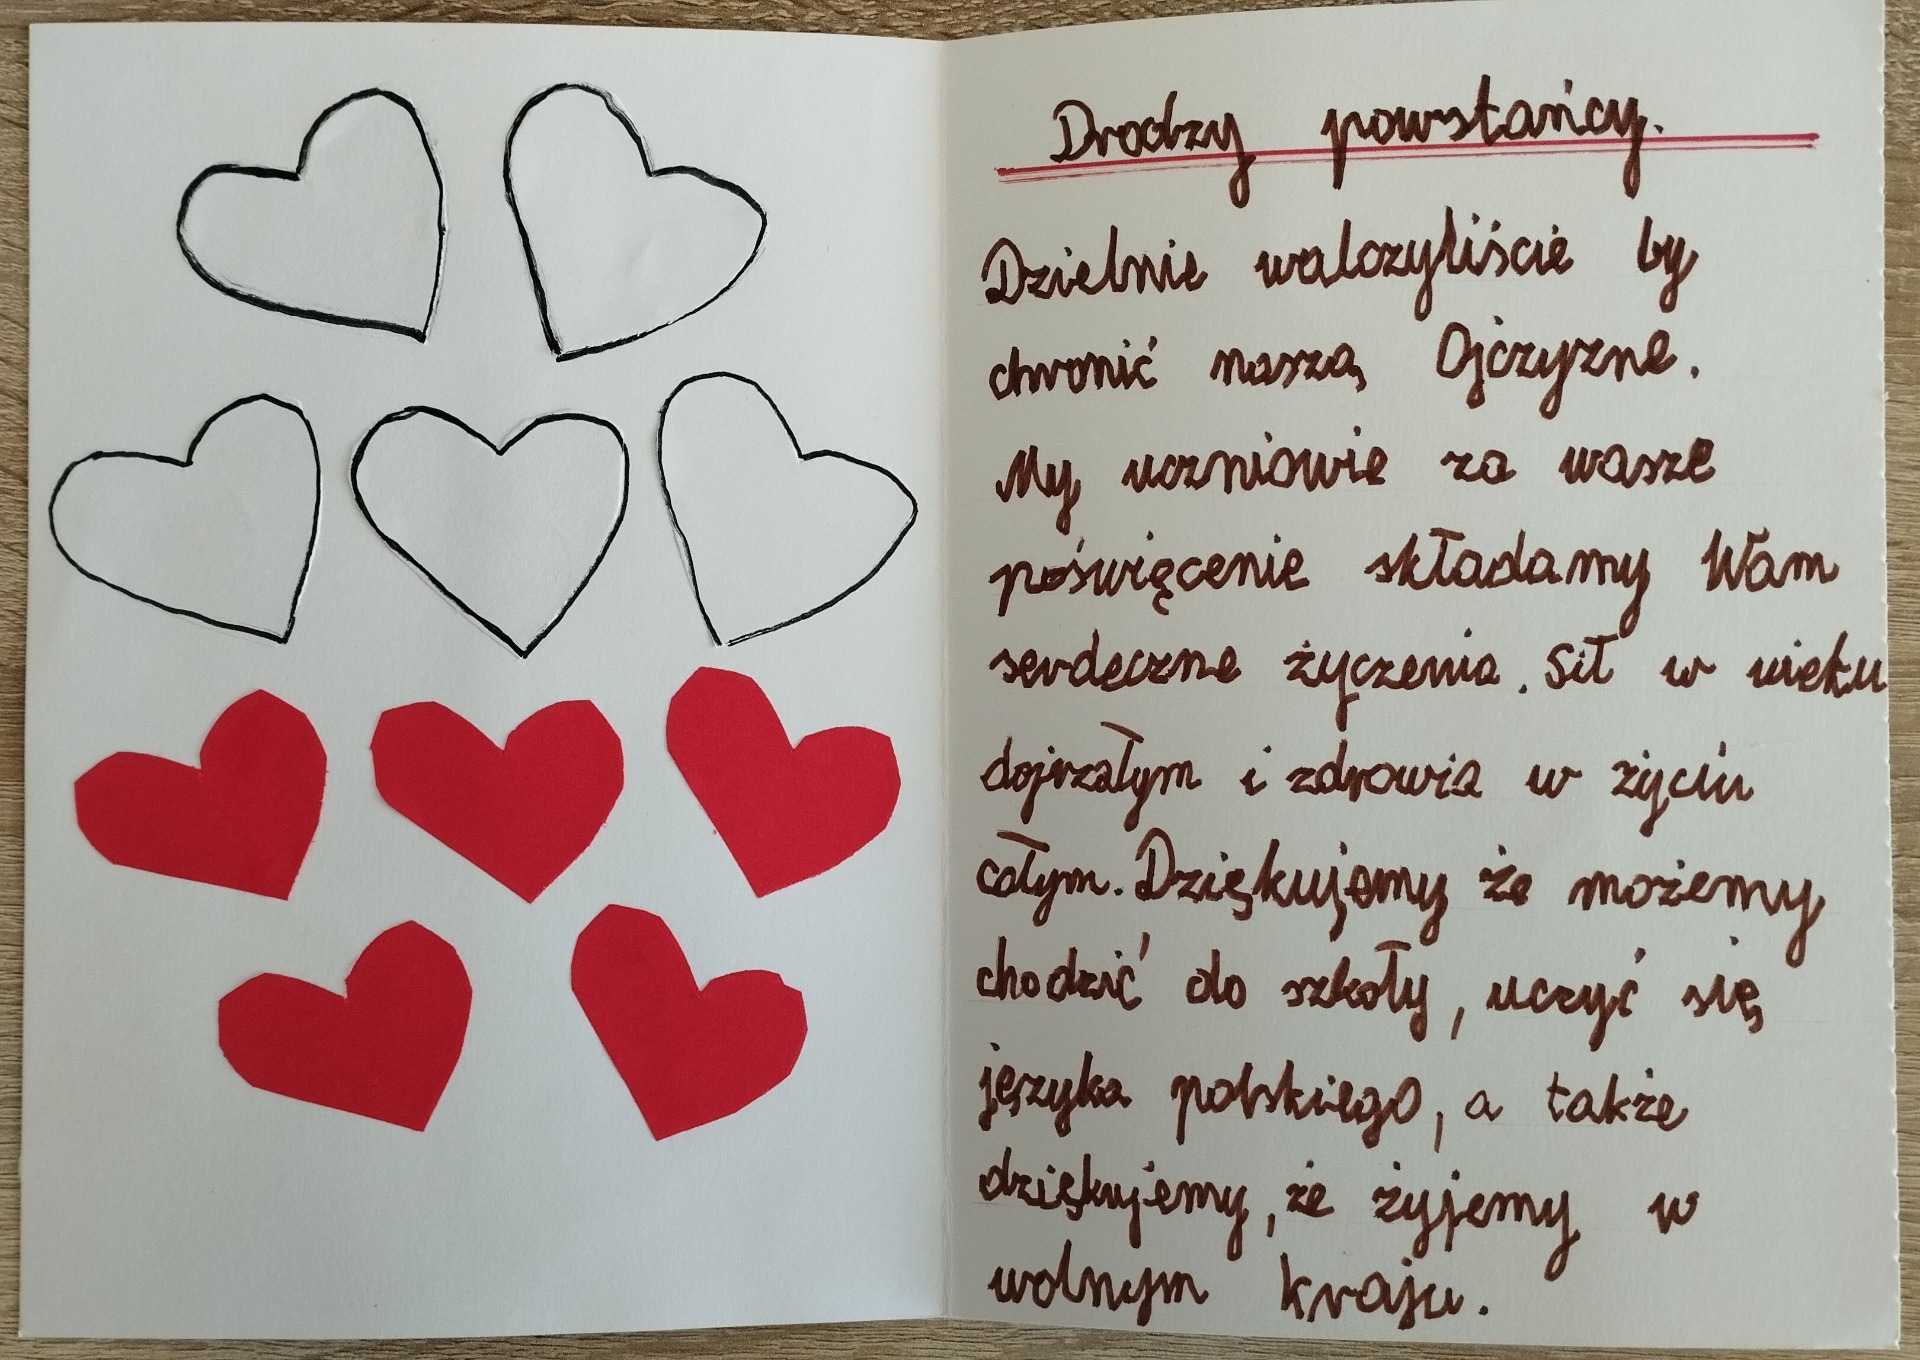 Drodzy powstańcy.
Dzielnie walczyliście by
chronić naszą Ojczyzne.
My uczniowie za wasze
poświęcenie składamy Wam
serdeczne życzenia. Sił w wieku
dojrzałym i zdrowia w życiu
całym. Dziękujemy że możemy
chodzić do szkoły, uczyć się
języka polskiego, a także
dziękujemy, że żyjemy w
wolnym kraju.